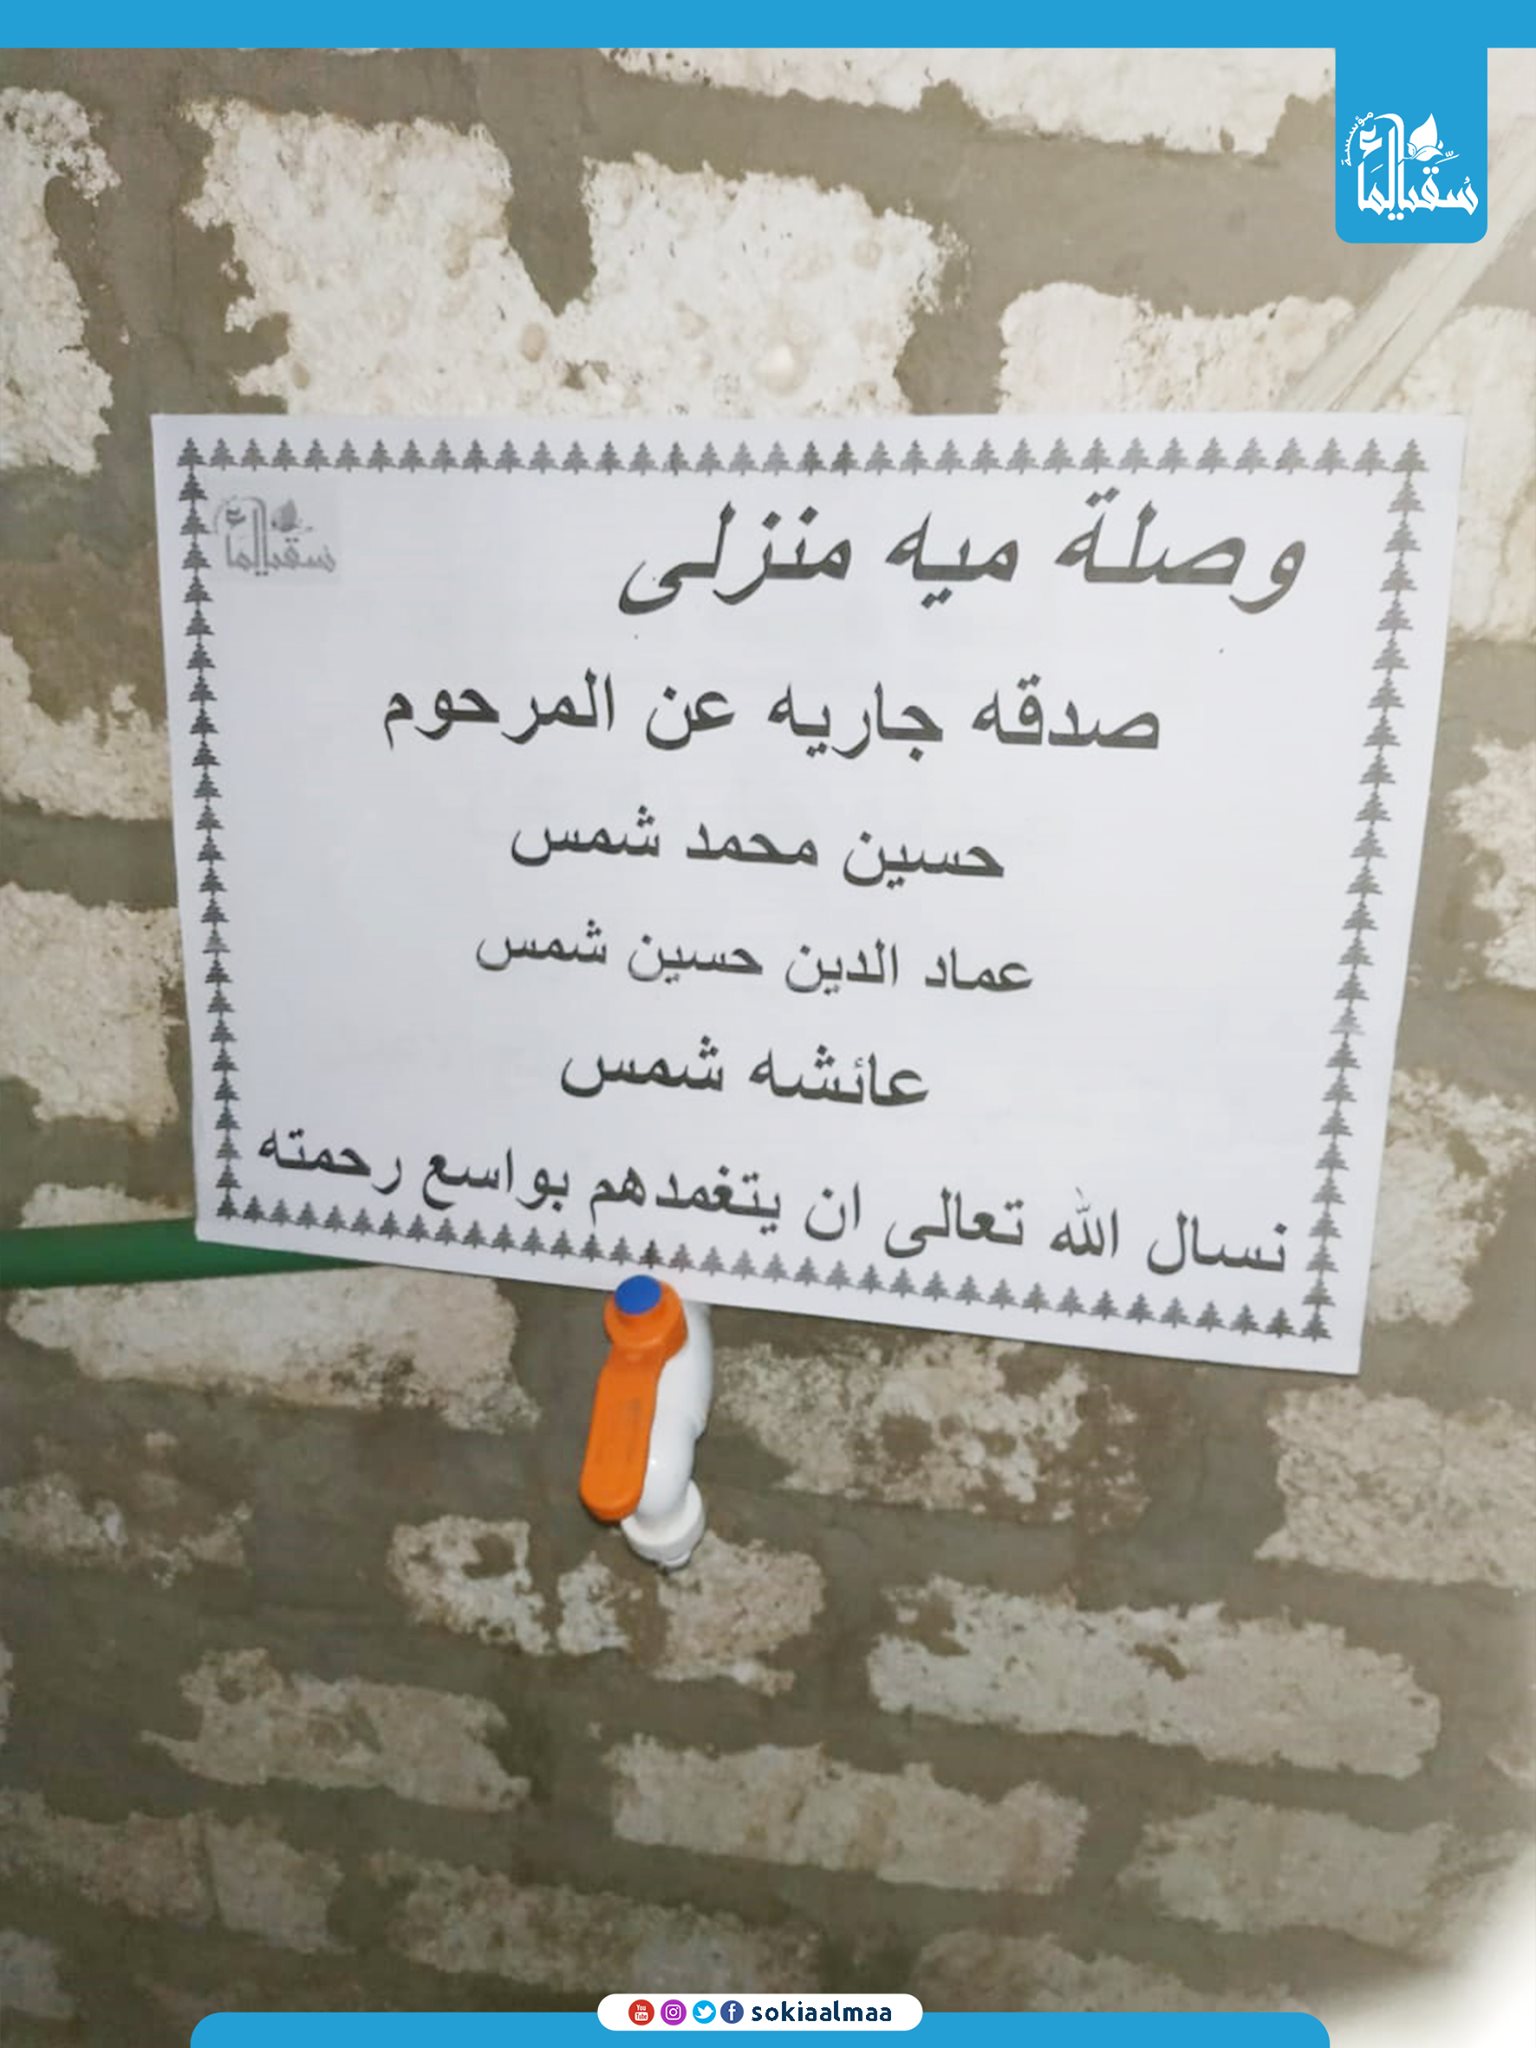 مؤسسة
سقيا الماء
سقيا الماء
وصلة ميه منزلى
صدقه جاريه عن المرحوم
حسين محمد شمس
عماد الدين حسين شمس
عائشه شمس
نسال الله تعالى ان يتغمدهم بواسع رحمته
sokiaalmaa